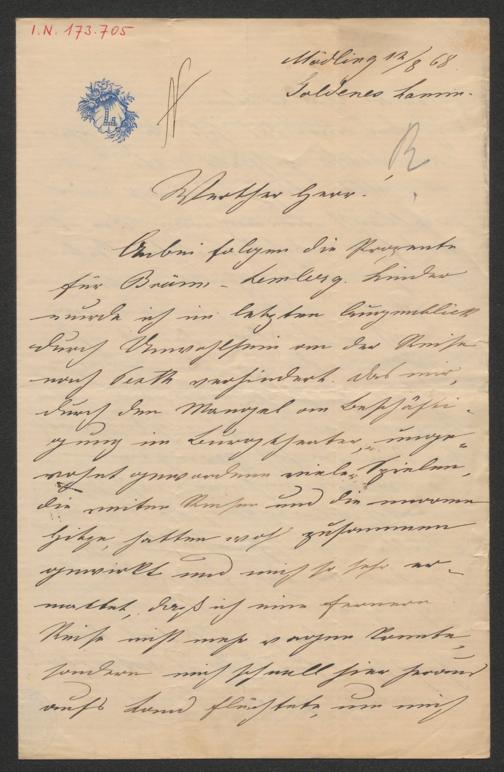 I.N. 173.705
Mödling 12/8 68
Goldenes Lamm.
L
Werther Herr!
Anbei folgen die Prozente
für Brünn - Lemberg. Leider
wurde ich im letzten Augenblick
durch Unwohlsein an der Reise
nach verhindert. Das mir,
durch den Mangel an Beschäfti-
gung im Burgtheater, unge-
wohnt gewordene viele Spielen,
die weiten Reisen und die enorme
Hitze, hatten wol zusammen
gewirkt und mich so sehr er-
mattet, daß ich eine fernere
Reise nicht mehr wagen konnte,
sondern mich schnell hier heraus
aufs Land flüchtete, um mich